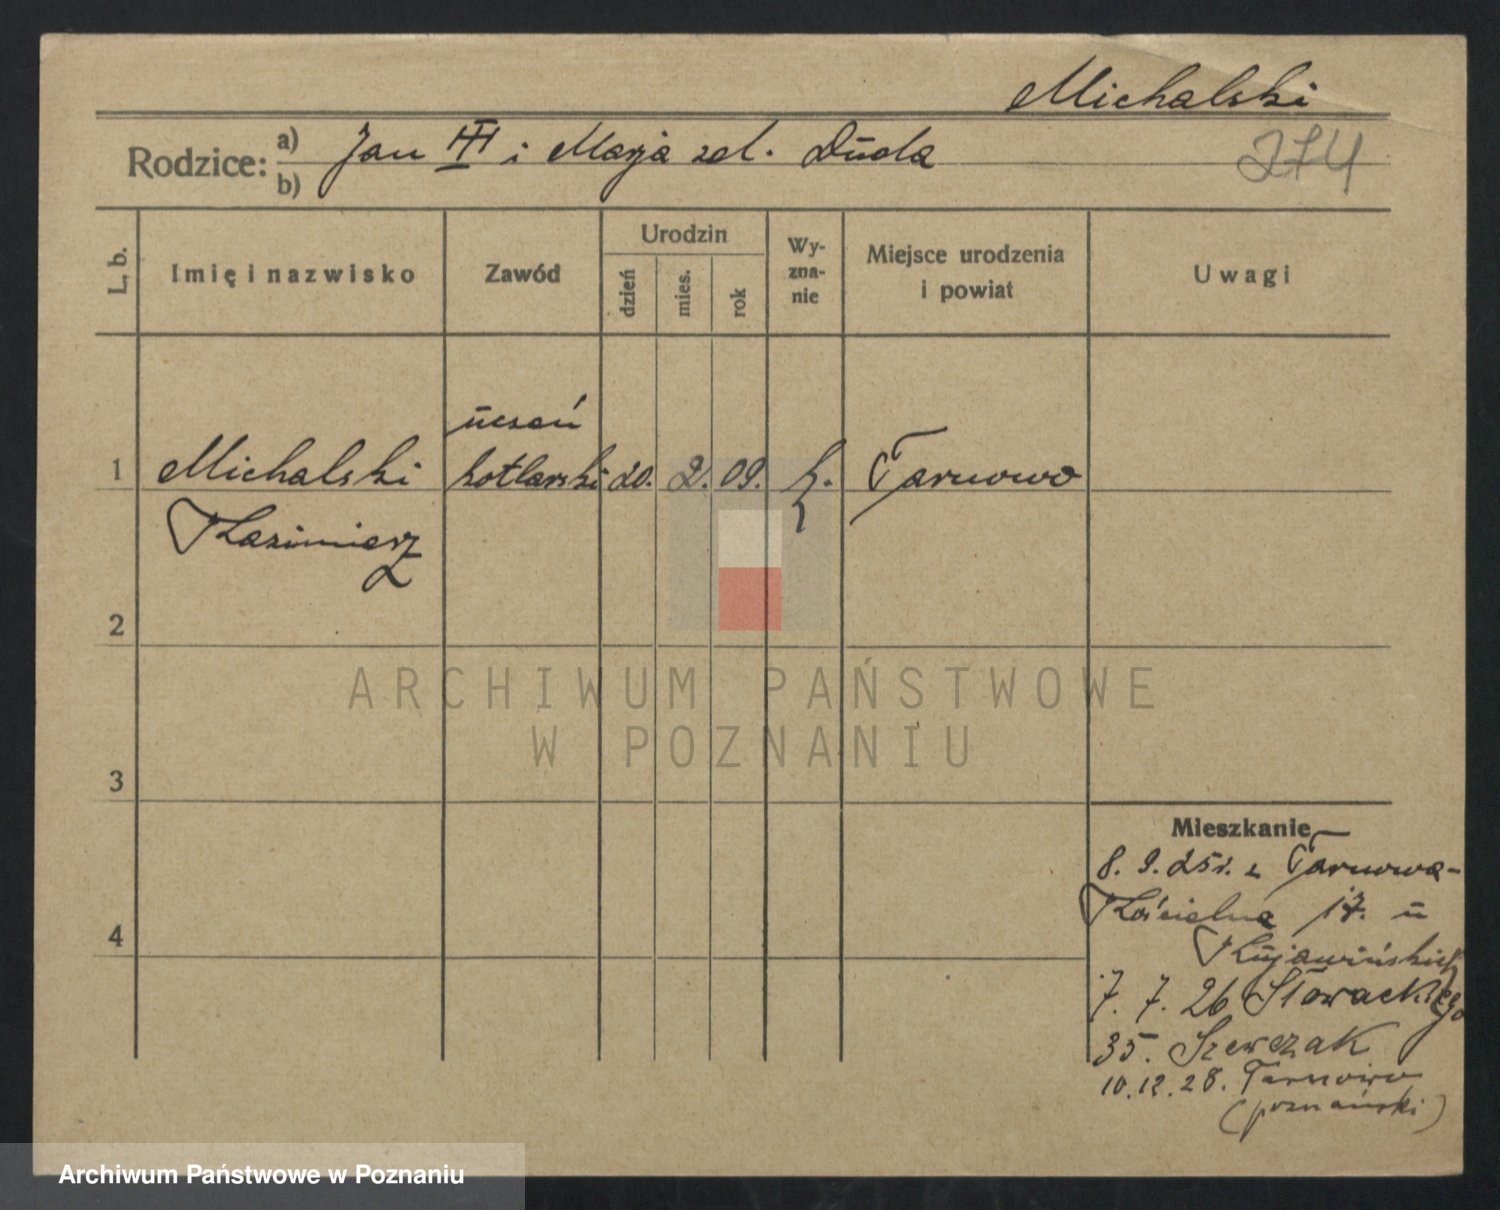 Michalski
274
Rodzice: a) Jan III i Marja zd. Duda
b)
L. b.
Imię i nazwisko
Zawód
Urodzin
dzień
mies.
rok
Wy-
zna-
nie
Miejsce urodzenia
i powiat
Uwagi
uczeń
1 Michalski kotlarski 20. 2. 09. k. Tarnowo
Kazimierz
2
ARCHIWUM PAŃSTWOWE
W POZNANIU
3
Mieszkanie
8. 9. 25 r. z Tarnowa-
Kościelna 17. u
4
Kujawińskich
7. 7. 26 Słowackiego
35. Szewczak
10.12.28. Tarnowo
(poznański)
Archiwum Państwowe w Poznaniu